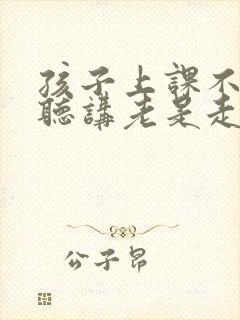 孩子上課不
聽講老是走
公子昂